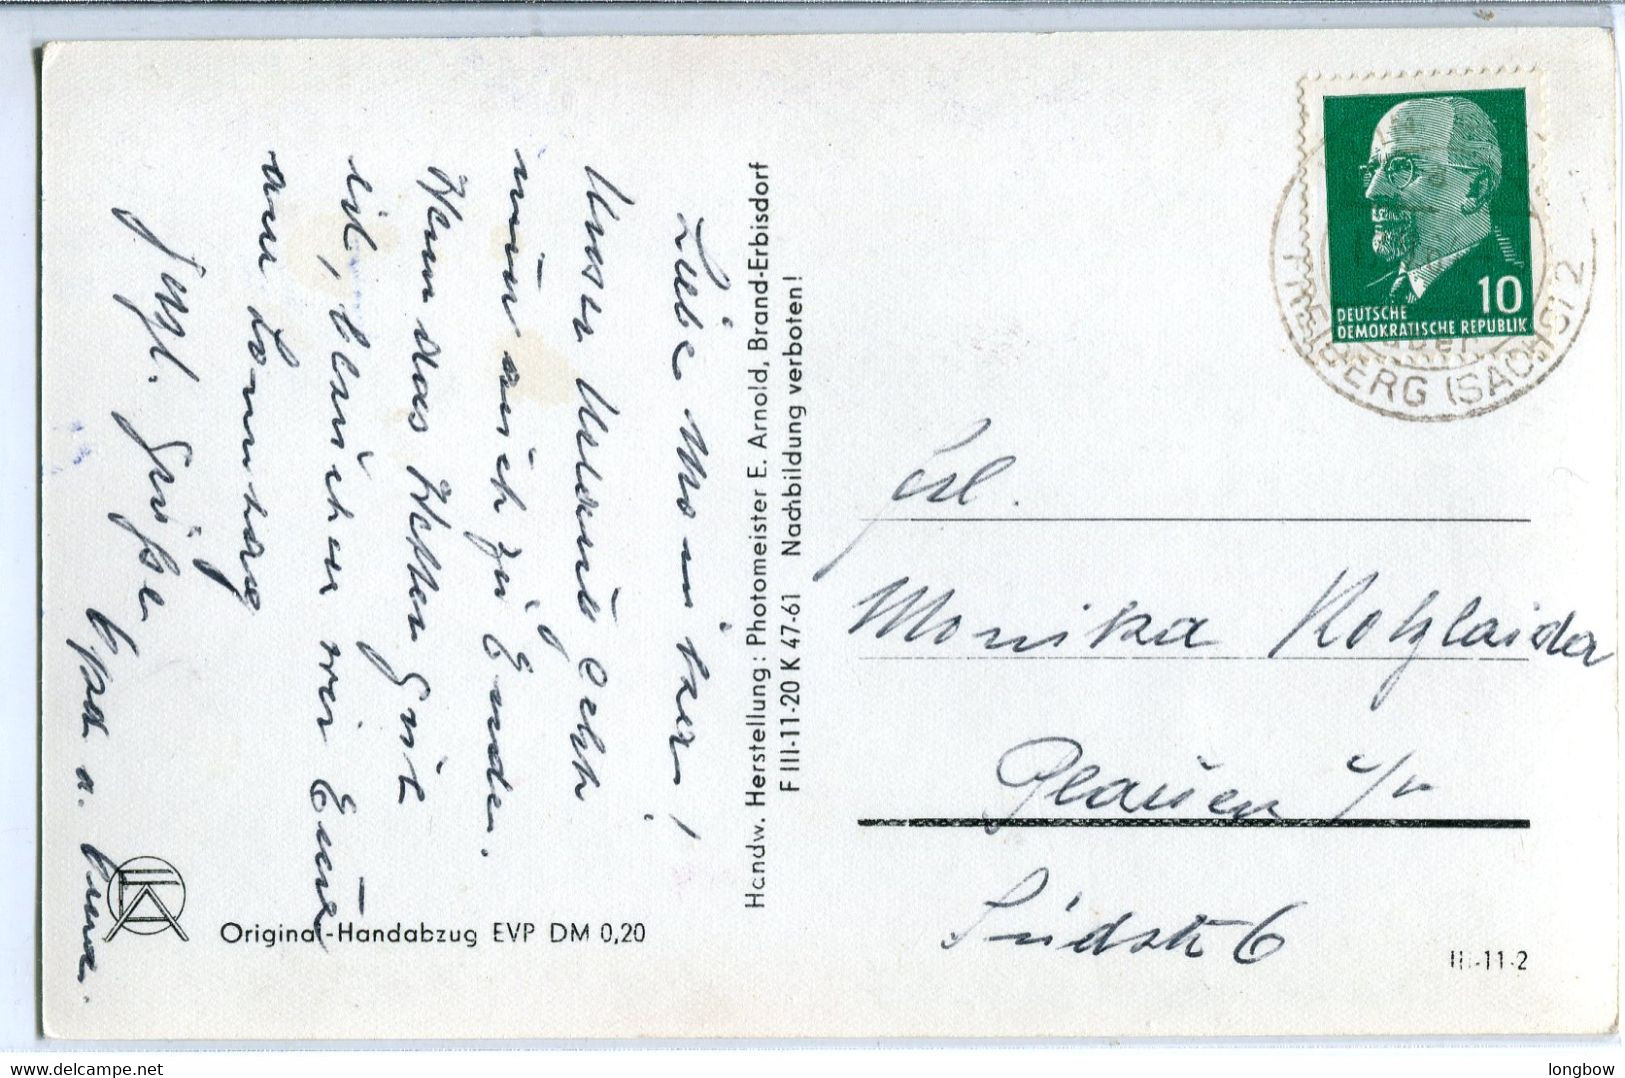 Liebe Monika!
Unser Urlaub geht
nun auch zu Ende.
Wenn das Wetter gut
ist, besuchen wir Euch
am Sonntag
Herzl. Grüße
Frl.
Monika Kotzlaida
Plauen i/V
Südstr 6
Handw. Herstellung: Photomeister E. Arnold, Brand-Erbisdorf
F III-11-20 K 47-61 Nachbildung verboten!
Original-Handabzug EVP DM 0,20
III-11-2
10
DEUTSCHE
DEMOKRATISCHE REPUBLIK
FREIBERG (SACHS) 2
longbow